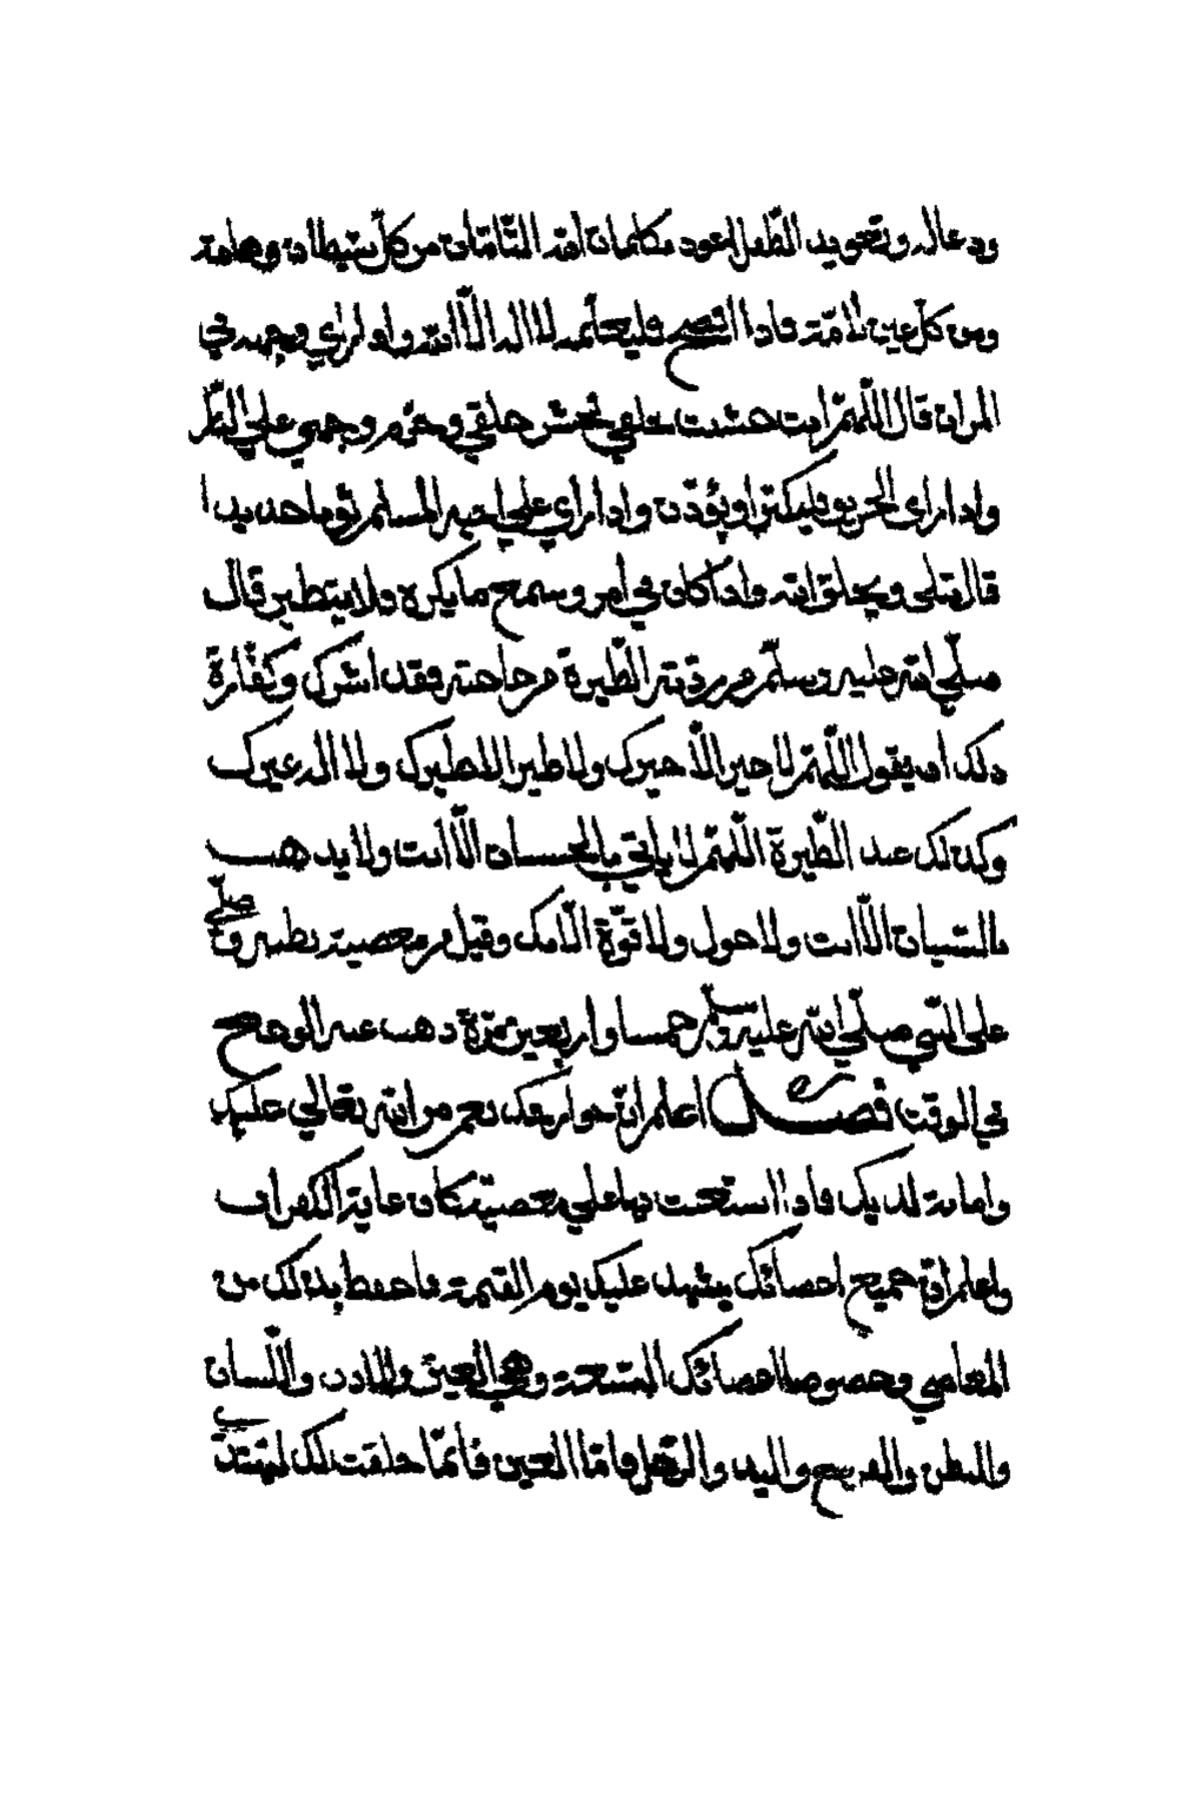 ودعا له وتعويد الطّفل اعوذ بكلمات الله التّامّات من كلّ شيطان وهامة
ومن كل عين لامّة فاذا افصح فليعلّمه لا اله الّا الله واذا راي وجهه في
المراة قال اللّهمّ انت حسنت خلقي فحسّن خلقي وحرّم وجهي علي النّار
واذا راى الحريق فليكبّر او يؤذّن واذا راي علي اخيه المسلم ثوبا جديدا
قال تبلى ويخلق الله واذا كان في امر وسمع ما يكره ولا يتطير قال
صلّي الله عليه وسلّم من ردّته الطّيرة من حاجته فقد اشرك وكفّارة
ذلك ان يقول اللّهمّ لا خير الّا خيرك ولا طير الا طيرك ولا اله غيرك
وكذلك عند الطّيرة اللّهمّ لا ياتي بالحسنات الّا انت ولا يذهب
بالسّيات الّا انت ولا حول ولا قوّة الّا بك وقيل من معصيته تطير وصلّي
على النّبي صلّي الله عليه وسلّم خمسا واربعين مرّة ذهب عنه الوجع
في الوقت فصل اعلم انّ جوارحك نعم من الله تعالي عليك
وامانة لديك فاذا استعنت بها علي معصيته فكان غاية الكفران
واعلم انّ جميع اعضائك يشهد عليك يوم القيمة فاحفظ بذلك من
المعاصي وخصوصا اعضائك السّبعة وهي العين والاذن واللّسان
والبطن والفرج واليد والرّجل فامّا العين فانّما خلقت لك لتهتدي